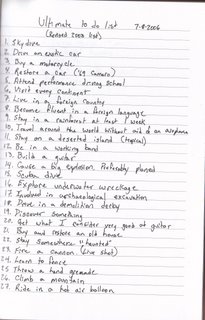 Ultimate to do list 7-8-2006
(Revised 2003 list)
1. Skydive
2. Own an exotic car
3. Buy a motorcycle
4. Restore a car ('69 Camaro)
5. Attend performance driving school
6. Visit every continent
7. Live in a foreign country
8. Become fluent in a foreign language
9. Stay in a rainforest at least 1 week
10. Travel around the world without aid of an airplane
11. Stay on a deserted island (tropical)
12. Be in a working band
13. Build a guitar
14. Cause a big explosion. Preferably planned
15. Scuba dive
16. Explore underwater wreckage
17. Involved in archaeological excavation
18. Drive in a demolition derby
19. Discover something
20. Get what I consider very good at guitar
21. Buy and restore an old house
22. Stay somewhere "haunted"
23. Fire a cannon (live shot)
24. Learn to fence
25. Throw a hand grenade
26. Climb a mountain
27. Ride in a hot air balloon